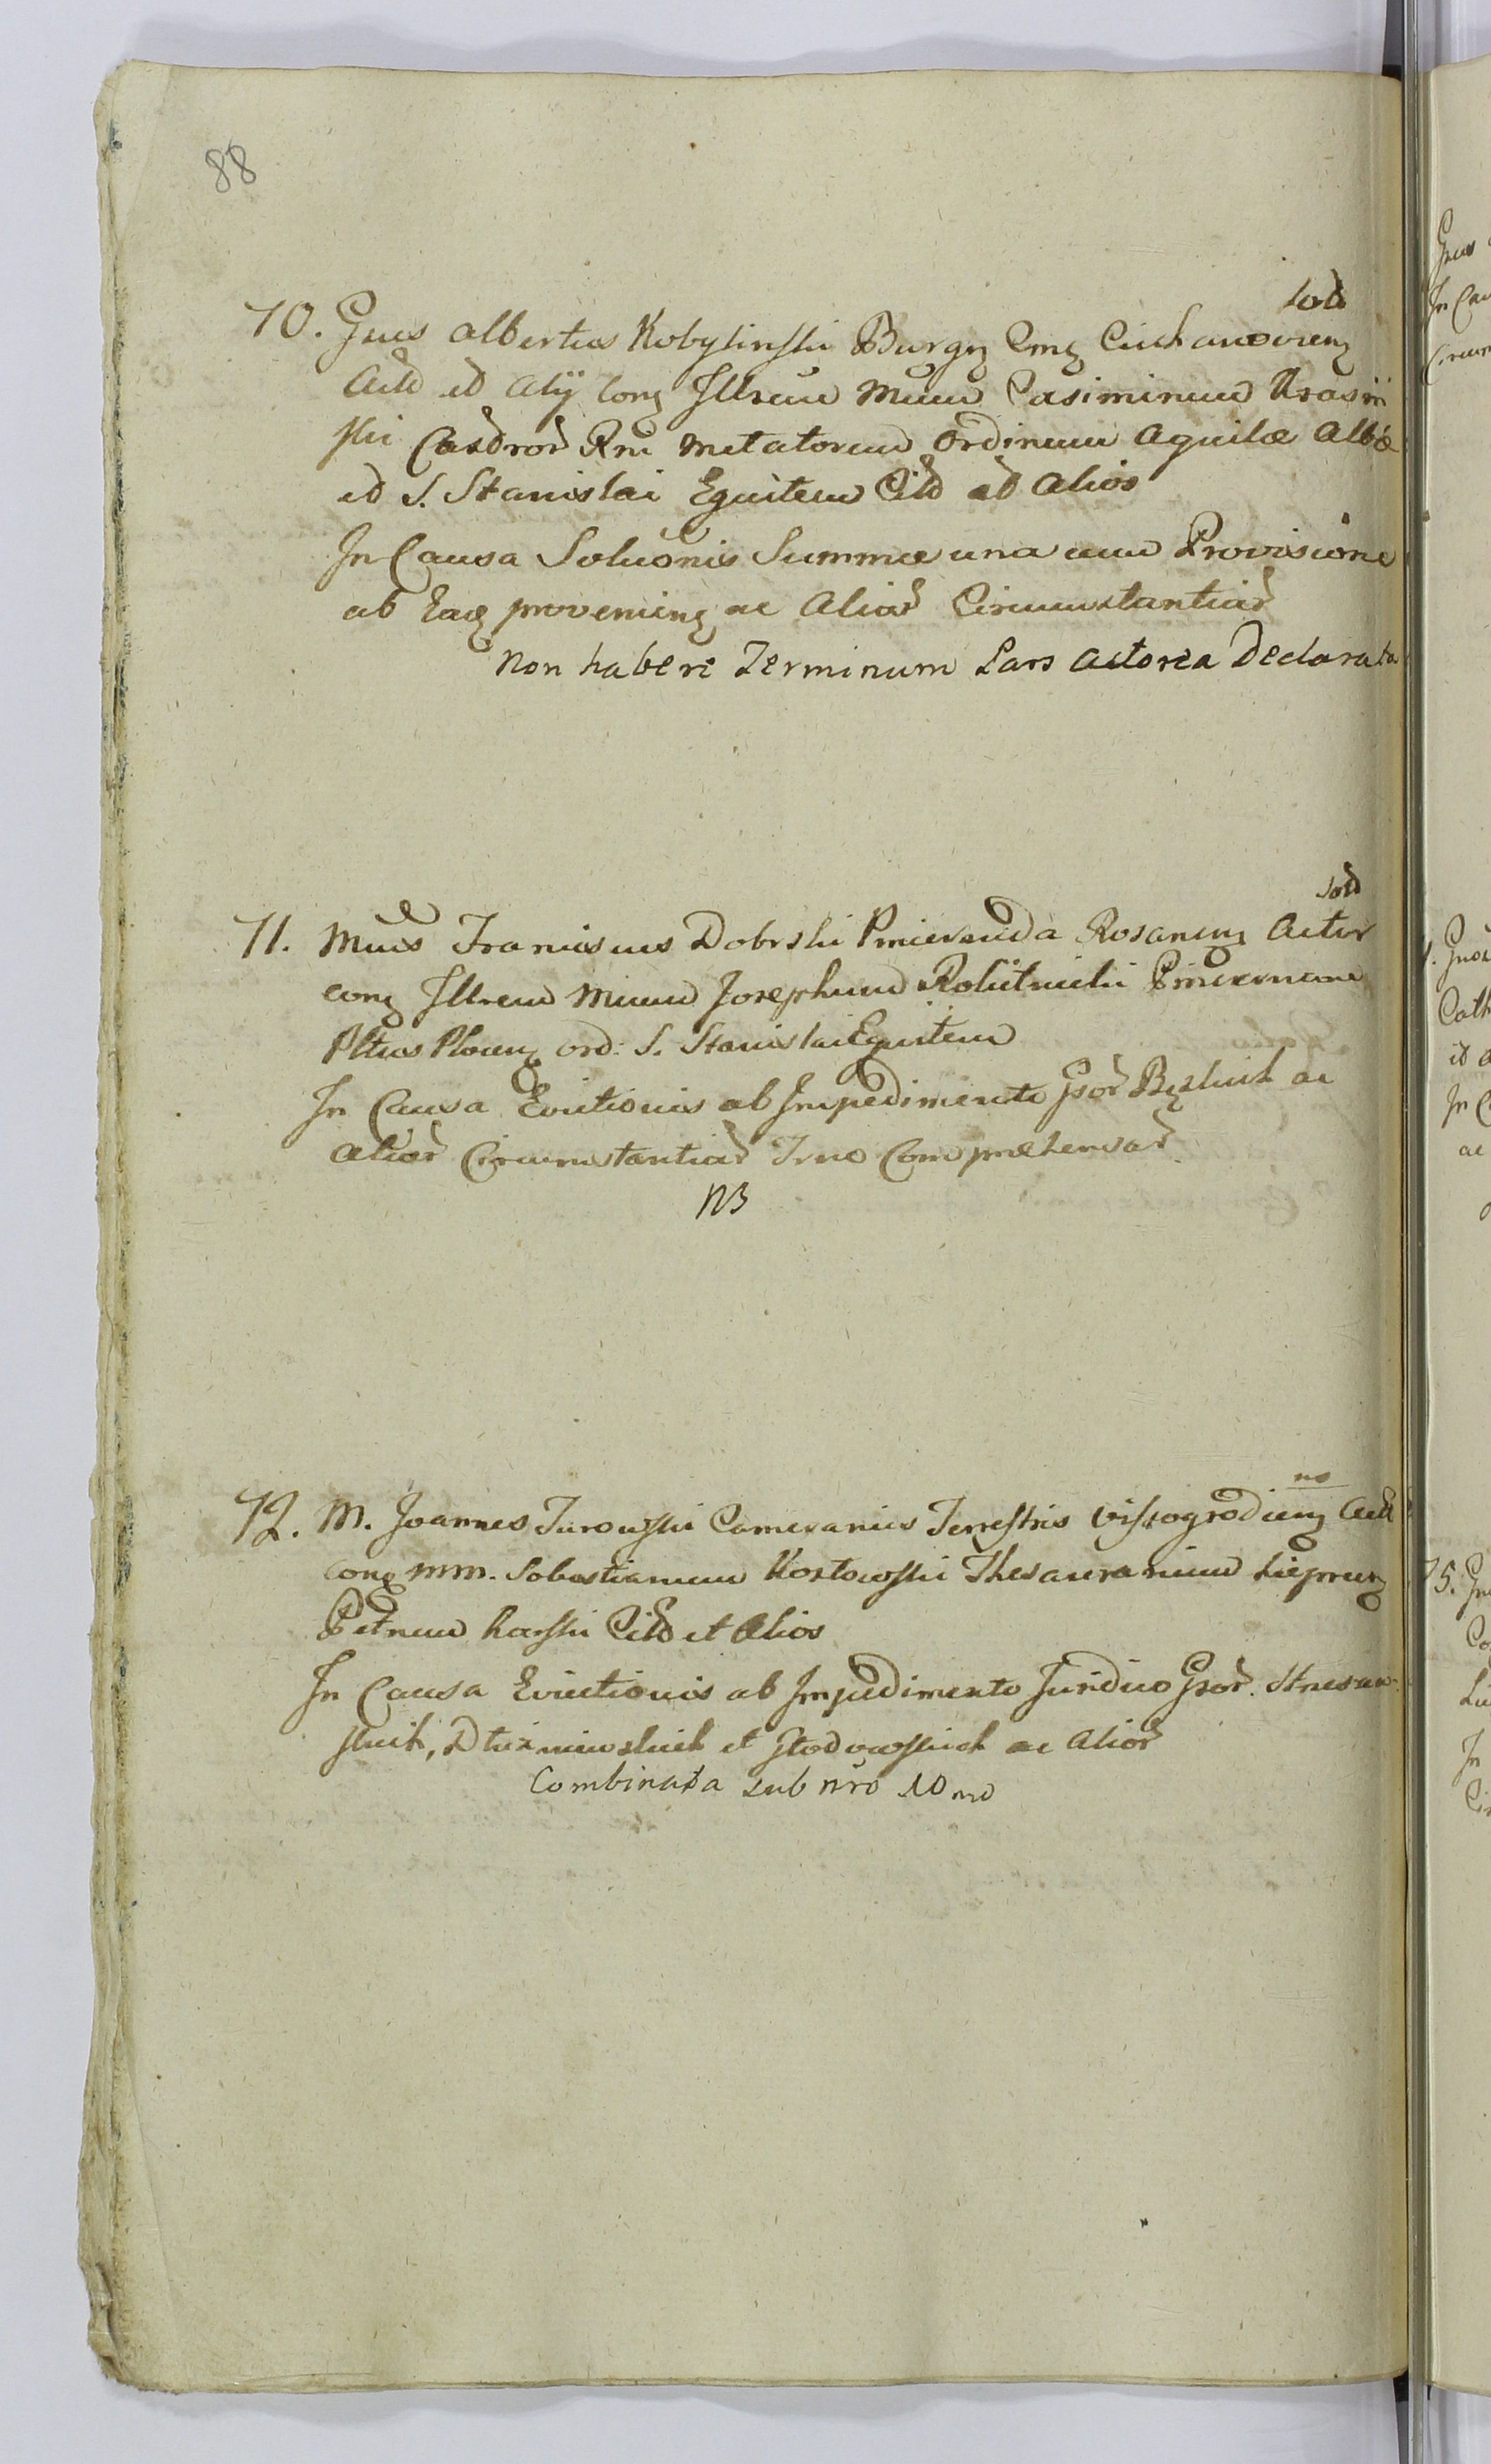 88
sold
70. Gnus Albertus Kobyliński Burgs Cins Ciechanoviens
Actd et Alij cons Illrem Mnum Casimirum Krasiń
ski Castror Rni Metatorem Ordinum Aquilæ Albæ
et S. Stanislai Equitem Citd et Alios
In Causa Solucionis Summæ una cum Provisione
ab Eaq proveniens ac Aliar Circumstantiar
Non habere Terminum Pars Actorea Declarata
sold
71. Mnus Franciscus Dobrski Pincerna Rosanens Actor
cons Illrem Mnum Josephum Pincernam
Pltus Plocens ord: S. Stanislai Equitem
In Causa Evictionis ab Impedimento Gsor ac
Aliar Circumstantiar Trno Compræhensar
NB
no
72. M. Joannes Turowski Camerarius Terrestris Vissogrodiens Actd
cons MM. Sebastianum Kostowski Thesaurarium
Petrum Karski Citd et Alios
In Causa Evictionis ab Impedimento Juridico Gsor.
skich, Dłużniewskich et ac Alior
Combinata sub nro 10mo